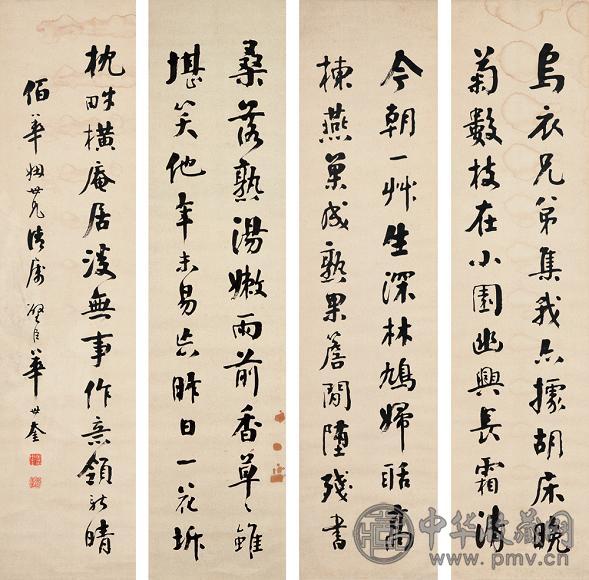 烏衣兄弟集我亦據胡床晚
菊數枝在小園幽興長霜清
今朝一艸生深林鳩婦聒高
棟燕巢成熟果簷間墮殘書
桑落熟湯嫩雨前香草〻雖
堪笑他年未易忘昨日一花坼
枕畔橫庵居無事作意領新晴
佰華姻世兄清屬 璧臣華世奎
中华收藏网
www.pmv.cn